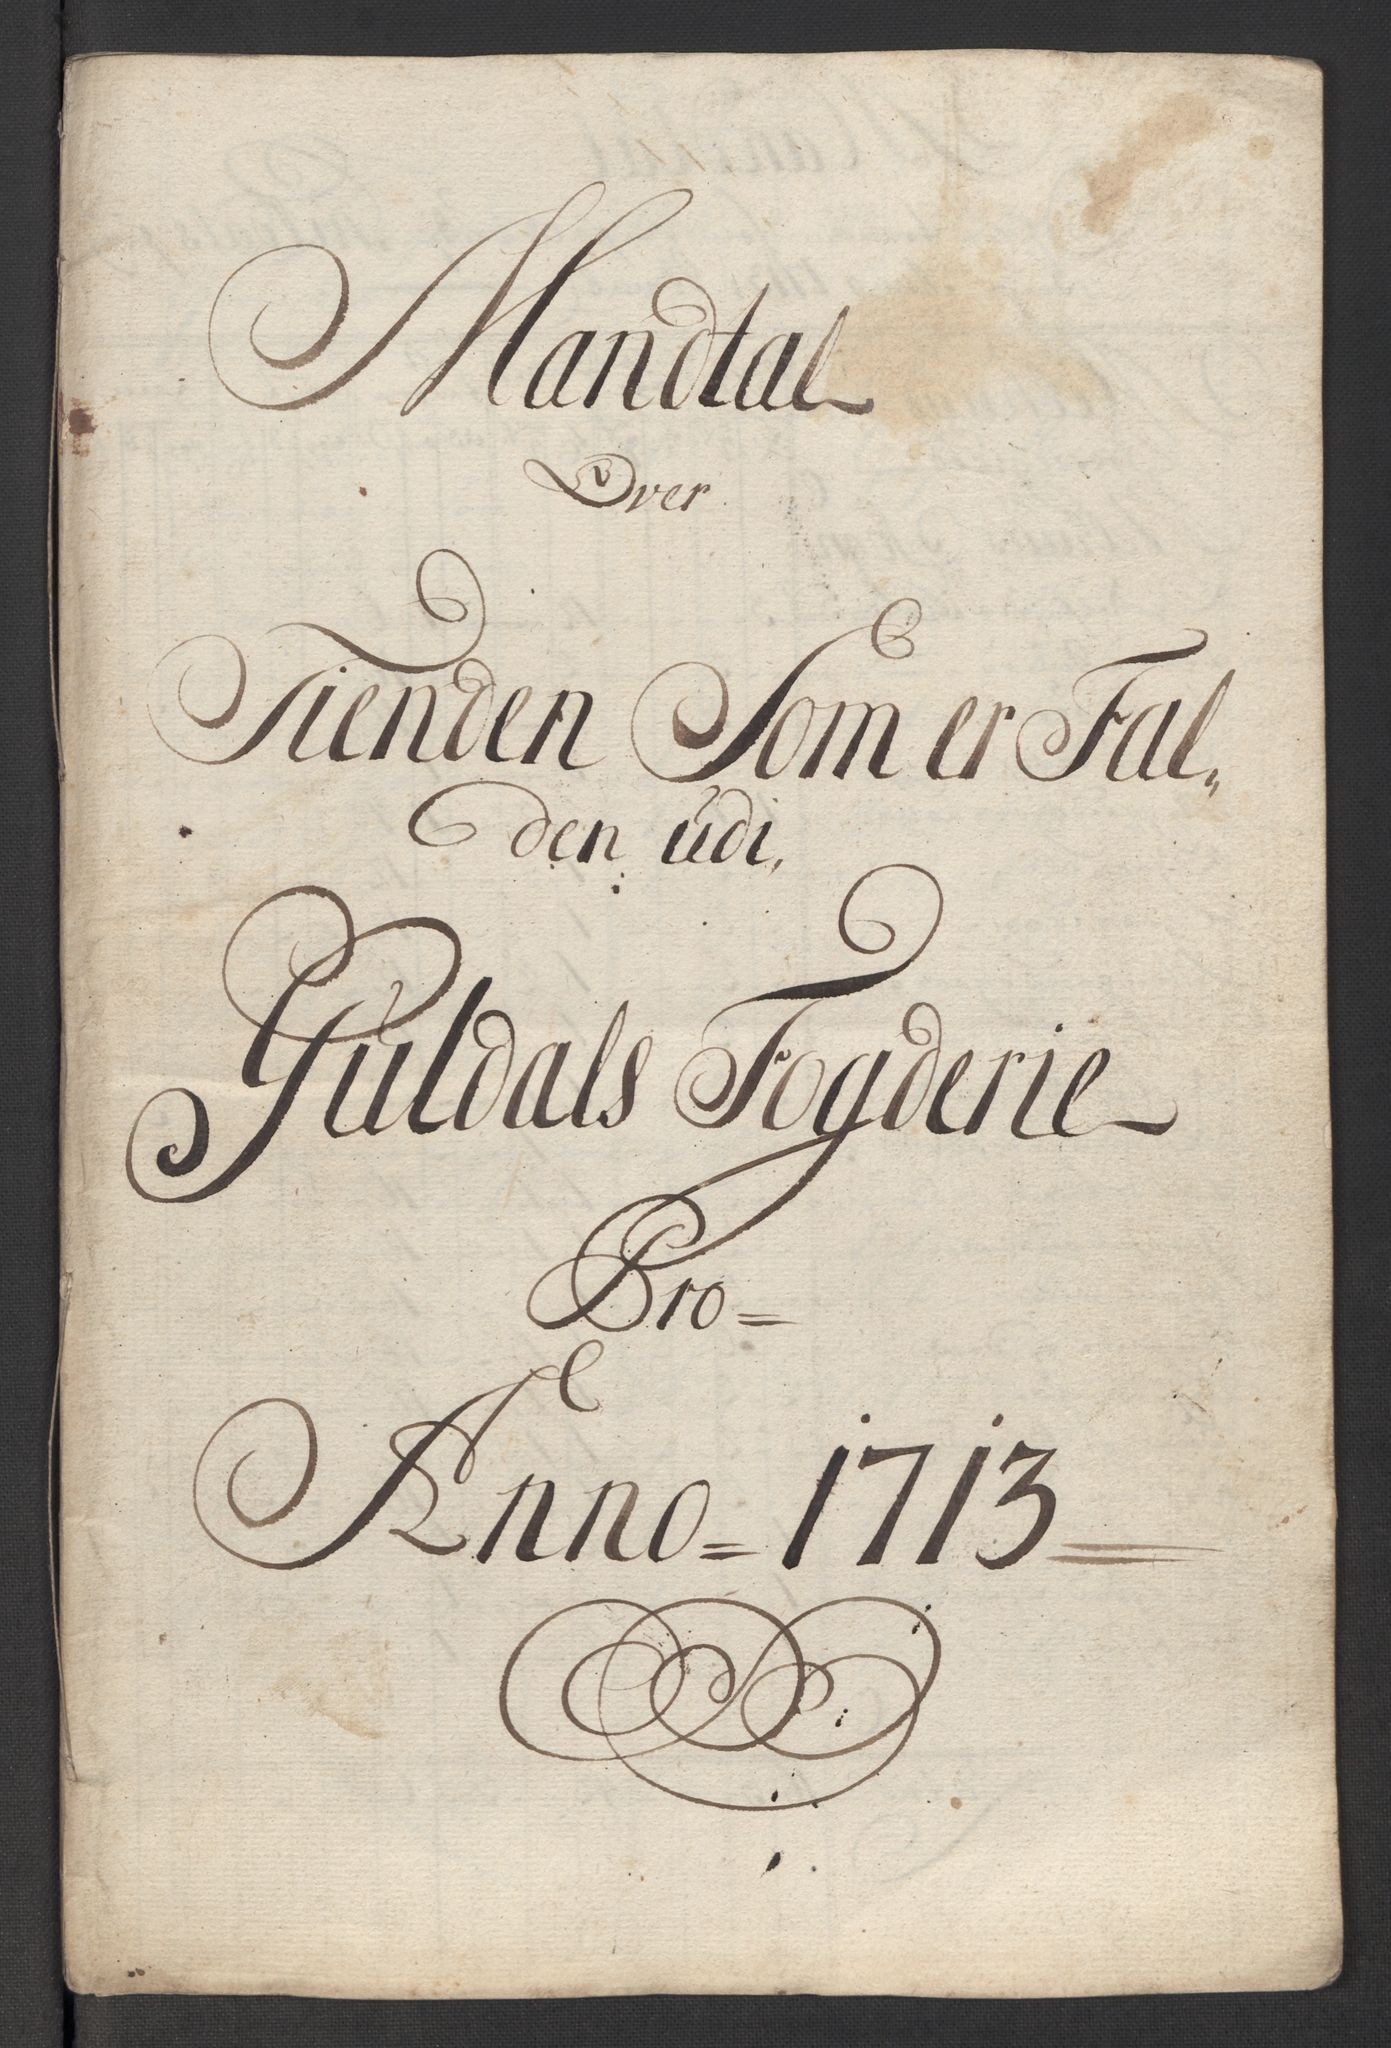 Mandtal
Over
Tienden Som er Fal„
den udi,
Guldals Fogderie
Pro=
Anno= 1713